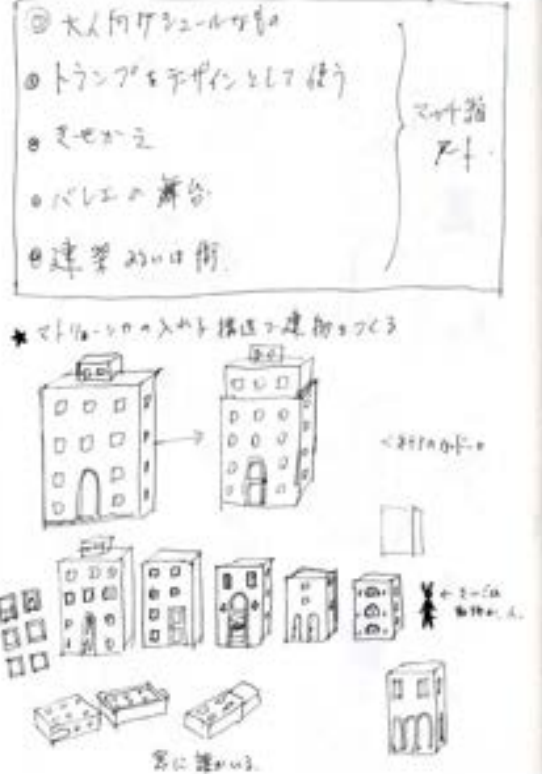 大人向けシュールなもの
トランプをデザインとして使う
きせかえ
バレエの舞台
建築あるいは街
マッチ箱
アート
★マトリョーシカの入れ子構造で建物をつくる
←さいごは
動物か人
常に誰かいる